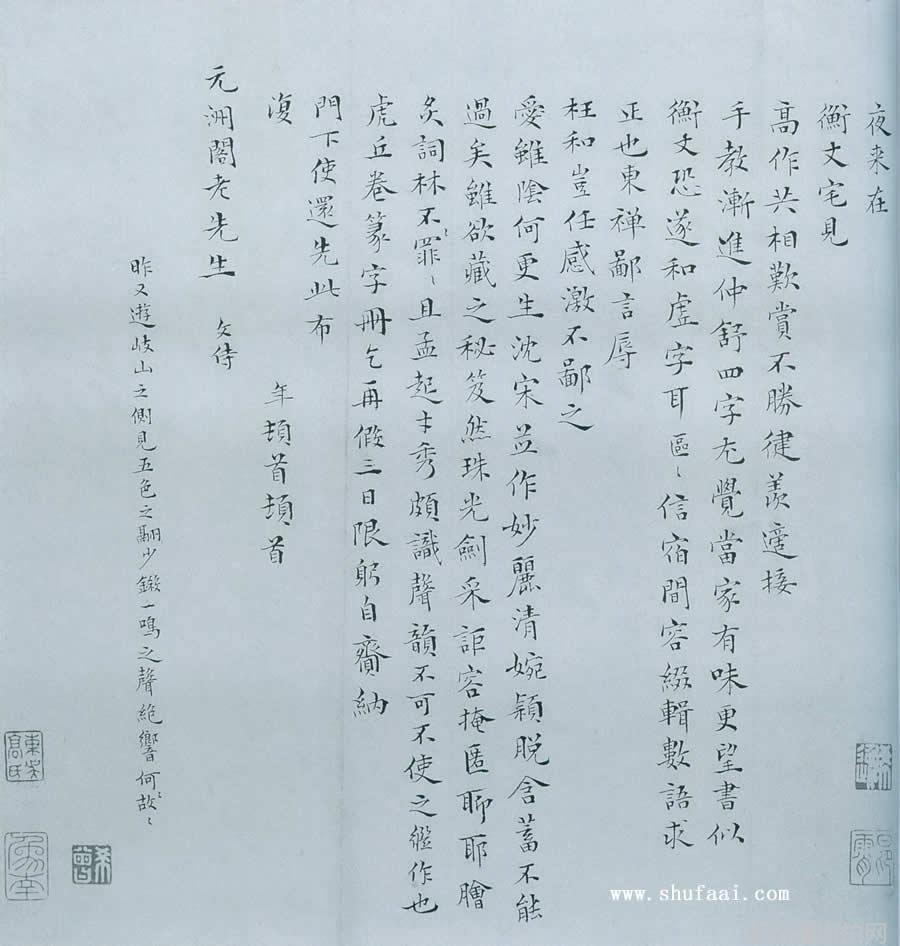 夜来在
衡丈宅見
高作共相歎賞不勝健羨適接
手教漸進仲舒四字尤覺當家有味更望書似
衡丈恐遂和虛字耳區〻信宿間容綴輯數語求
正也東禅鄙言辱
枉和豈任感激不鄙之
愛雖陰何更生沈宋並作妙麗清婉穎脱含蓄不能
過矣雖欲藏之秘笈然珠光劍采詎容掩匿聊耶膾
炙詞林不罪〻且孟起才秀頗識聲韻不可不使之繼作也
虎丘卷篆字冊乞再假三日限躬自賫納
門下使還先此布
復
年頓首頓首
元洲閣老先生 文侍
昨又遊岐山之側見五色之翮少鎩一鳴之聲絶響何故〻
www.shufaai.com